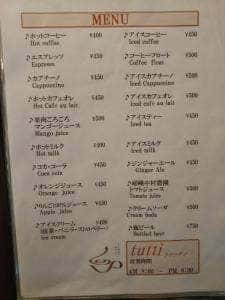 MENU
♪ホットコーヒー ¥400
Hot coffee
♪エスプレッソ ¥450
Espresso
♪カプチーノ ¥450
Cappuccino
♪ホットカフェオレ ¥450
Hot Cafe au lait
♪果肉ごろごろ
マンゴージュース ¥450
Mango juice
♪ホットミルク ¥400
Hot milk
♪コカ・コーラ ¥450
Coca cola
♪オレンジジュース ¥450
Orange juice
♪りんご100%ジュース ¥450
Apple juice
♪アイスクリーム ¥400
Ice cream
♪アイスコーヒー ¥450
Iced coffee
♪コーヒーフロート ¥500
Coffee float
♪アイスカプチーノ ¥500
Iced Cappuccino
♪アイスカフェオレ ¥500
Iced café au lait
♪アイスティー ¥450
Iced tea
♪アイスミルク ¥450
Iced milk
♪ジンジャーエール ¥450
Ginger Ale
トマトジュース ¥500
Tomato juice
♪クリームソーダ ¥500
Cream soda
♪瓶ビール ¥500
Bottled beer
tutti
営業時間